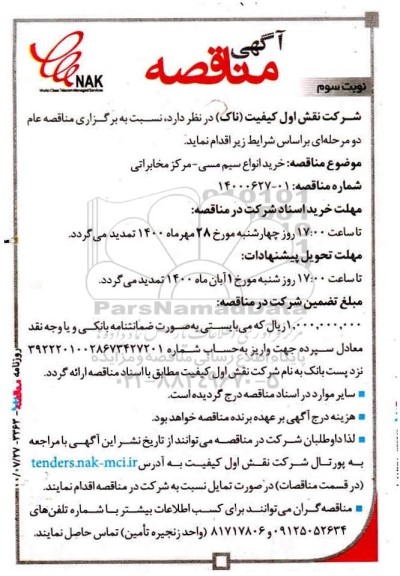 آگهی
مناقصه
NAK
World Class Telecom Managed Services
نوبت سوم
شرکت نقش اول کیفیت (ناک) در نظر دارد، نسبت به برگزاری مناقصه عام
دو مرحله‌ای براساس شرایط زیر اقدام نماید.
موضوع مناقصه: خرید انواع سیم مسی-مرکز مخابراتی
شماره مناقصه: ۰۱-۱۴۰۰۰۶۲۷
مهلت خرید اسناد شرکت در مناقصه:
تا ساعت ۱۷:۰۰ روز چهارشنبه مورخ ۲۸ مهرماه ۱۴۰۰ تمدید می گردد.
مهلت تحویل پیشنهادات:
تا ساعت ۱۷:۰۰ روز شنبه مورخ ۱ آبان ماه ۱۴۰۰ تمدید می گردد.
ParsNamadData
مبلغ تضمین شرکت در مناقصه:
۱,۰۰۰,۰۰۰,۰۰۰ ریال که می بایستی به صورت ضمانتنامه بانکی و یا وجه نقد
معادل سپرده جهت واریز به حساب شماره ۳۹۲۲۲۰۱۰۰۲۸۶۷۳۴۲۷۲۰۱
پایگاه اطلاع رسانی مناقصه و مزایده
نزد پست بانک به نام شرکت نقش اول کیفیت مطابق با اسناد مناقصه ارائه گردد.
۰۲۱-۸۸۳۴۹۶۷۰-۵
سایر موارد در اسناد مناقصه درج گردیده است.
هزینه درج آگهی بر عهده برنده مناقصه خواهد بود.
لذا داوطلبان شرکت در مناقصه می توانند از تاریخ نشر این آگهی با مراجعه
به پورتال شرکت نقش اول کیفیت به آدرس tenders.nak-mci.ir
(در قسمت مناقصات) در صورت تمایل نسبت به شرکت در مناقصه اقدام نمایند.
مناقصه گران می توانند برای کسب اطلاعات بیشتر با شماره تلفن های
۰۹۱۲۵۰۵۲۶۳۴ و ۸۱۷۱۷۸۰۶ (واحد زنجیره تأمین) تماس حاصل نمایند.
روزنامه